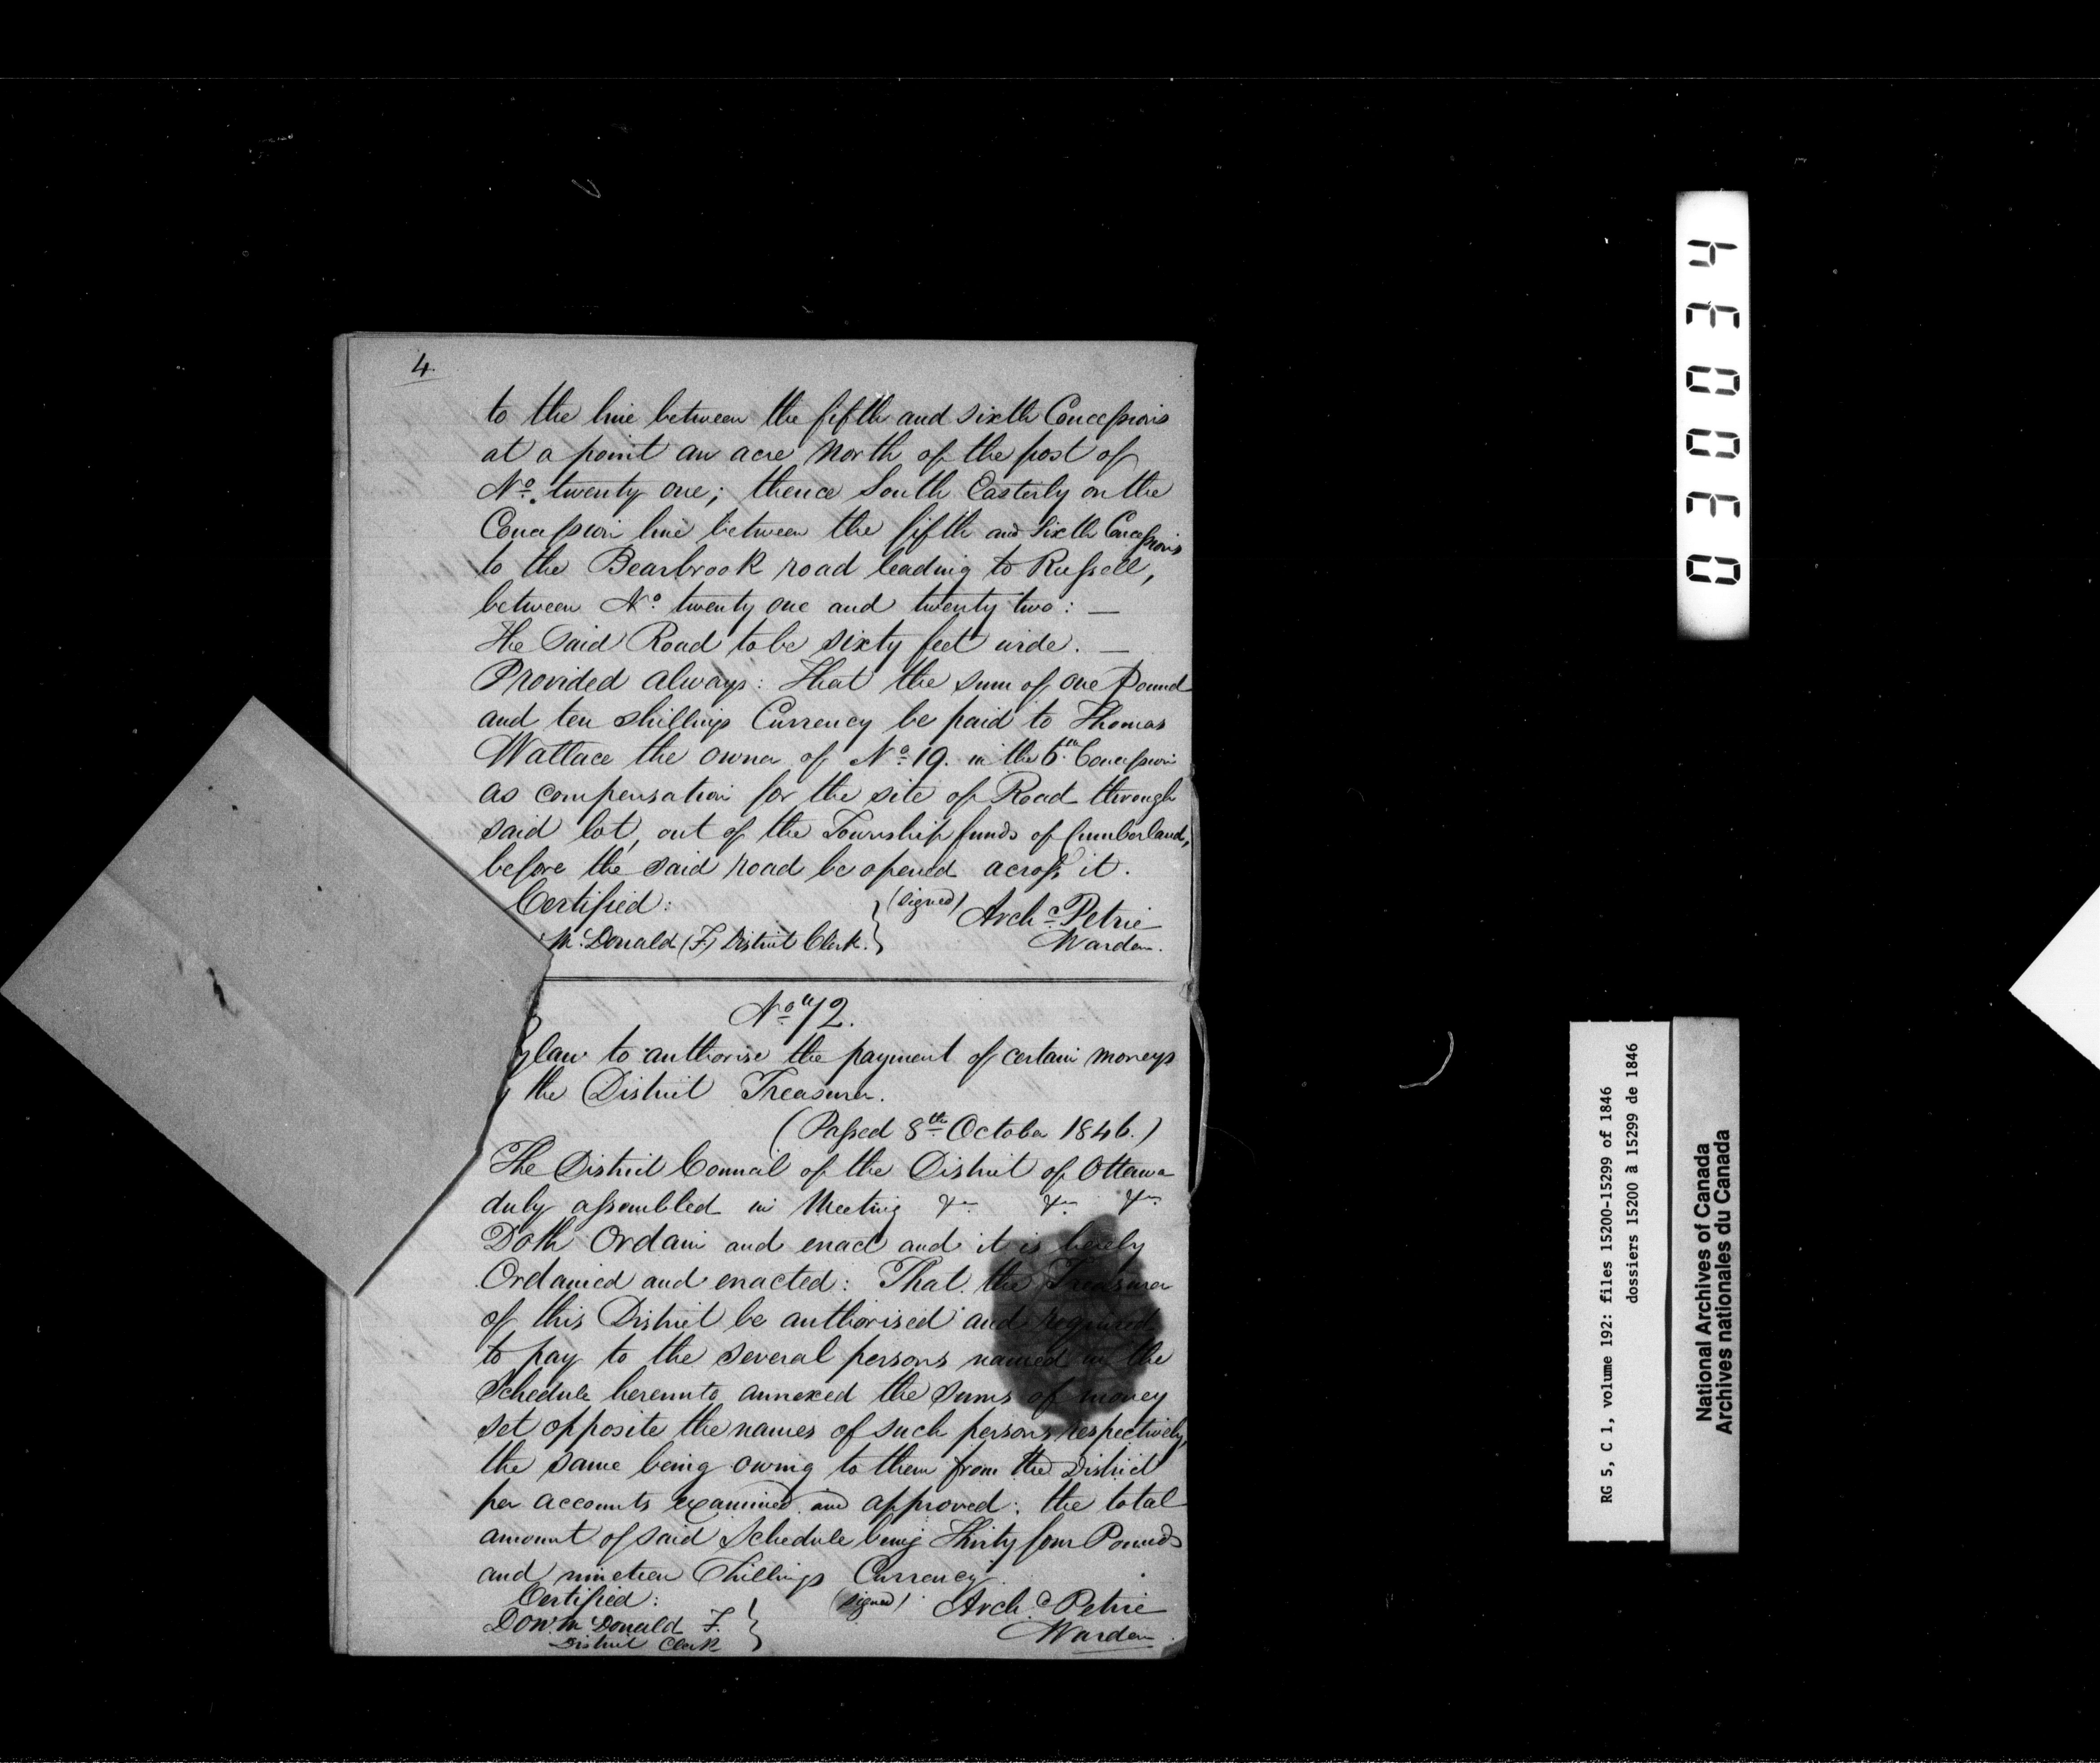 4.
to the line between the fifth and sixth Concessions
at a point an acre North of the post of
No. twenty one; thence South Easterly on the
Concession line between the fifth and Sixth Concessions
to the Bearbrook road leading to Russell,
between No. twenty one and twenty two: —
The Said Road to be sixty feet wide. —
Provided always: That the sum of one Pound
and ten shillings Currency be paid to Thomas
Wallace the owner of No. 19. in the 6th. Concession
as compensation for the site of Road through
said lot, out of the Township funds of Cumberland,
before the said road be opened across it.
Certified:
(signed) Archd. Petrie
Mc.Donald (F.) District Clerk.
Warden.
No. 72.
ylaw to authorise the payment of certain moneys
y the District Treasurer.
(Passed 8th. October 1846.)
The District Council of the District of Ottawa
duly assembled in Meeting &c. &c. &c.
Doth Ordain and enact and it is hereby
Ordained and enacted: That the Treasurer
of this District be authorised and required
to pay to the several persons named in the
Schedule hereunto annexed the sums of money
set opposite the names of such persons respectively,
the same being owing to them from the District
per accounts examined and approved: the total
amount of said Schedule being Thirty four Pounds
and nineteen Shillings Currency.
Certified:
(signed) Archd. Petrie
Don. Mc Donald F.
Warden.
District Clerk
030034
RG 5, C 1, volume 192: files 15200-15299 of 1846
dossiers 15200 à 15299 de 1846
National Archives of Canada
Archives nationales du Canada